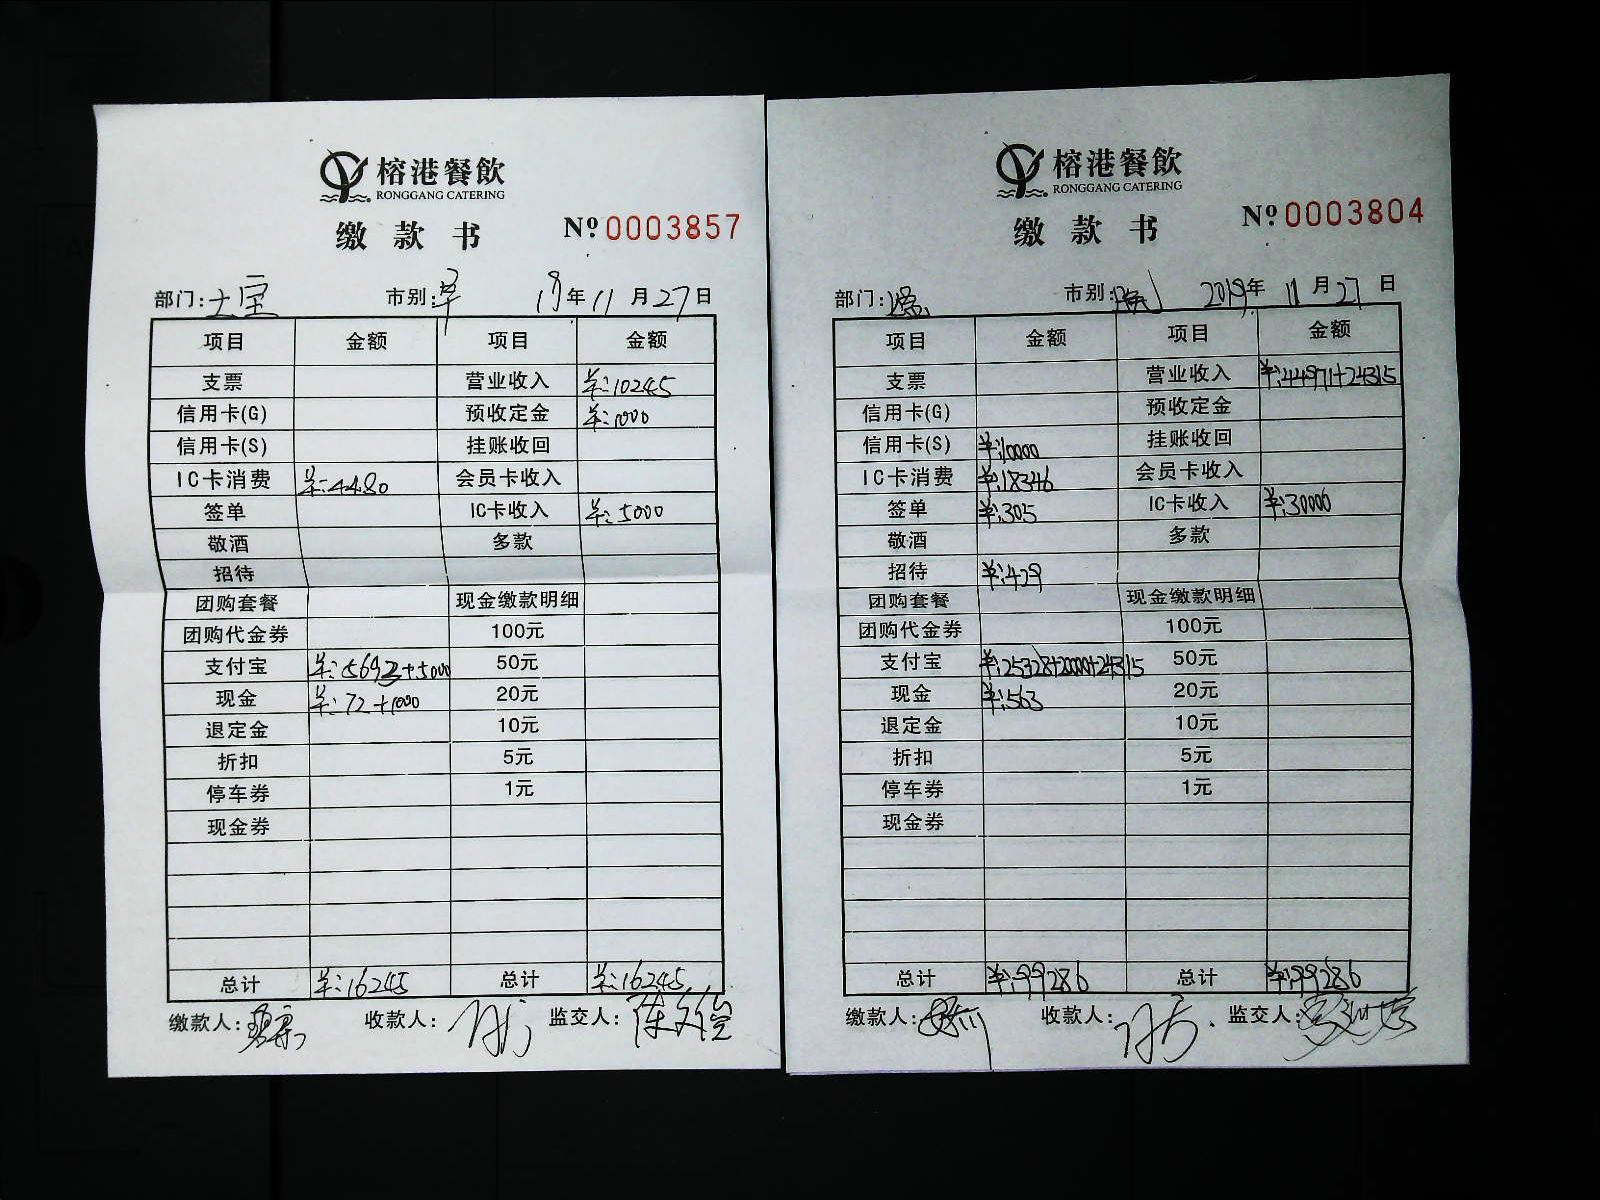 榕港餐飲
RONGGANG CATERING
缴款书 № 0003857
部门: 大宝 市别: 早 19年 11月 27日
项目 金额 项目 金额
支票 营业收入 ¥:10245
信用卡(G) 预收定金 ¥:1000
信用卡(S) 挂账收回
IC卡消费 ¥:4480 会员卡收入
签单 IC卡收入 ¥:5000
敬酒 多款
招待
团购套餐 现金缴款明细
团购代金券 100元
支付宝 ¥:5693+5000 50元
现金 ¥:72+1000 20元
退定金 10元
折扣 5元
停车券 1元
现金券
总计 ¥:16245 总计 ¥:16245
缴款人: 收款人: 监交人:
榕港餐飲
RONGGANG CATERING
缴款书 № 0003804
部门: 市别: 2019年 11月 27日
项目 金额 项目 金额
支票 营业收入 ¥:44971+24315
信用卡(G) 预收定金
信用卡(S) ¥:10000 挂账收回
IC卡消费 ¥:18346 会员卡收入
签单 ¥:305 IC卡收入 ¥:30000
敬酒 多款
招待 ¥:429
团购套餐 现金缴款明细
团购代金券 100元
支付宝 ¥:25328+20000+24315 50元
现金 ¥:563 20元
退定金 10元
折扣 5元
停车券 1元
现金券
总计 ¥:99286 总计 ¥:99286
缴款人: 收款人: 监交人: